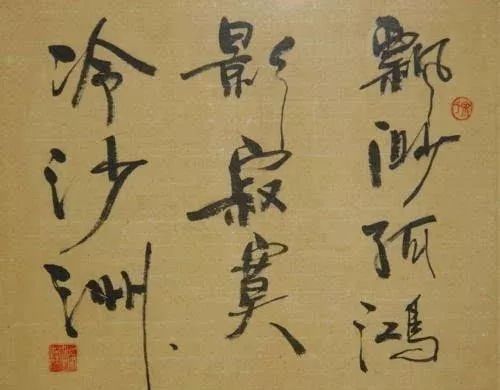 飄渺孤鴻
影寂寞
冷沙洲